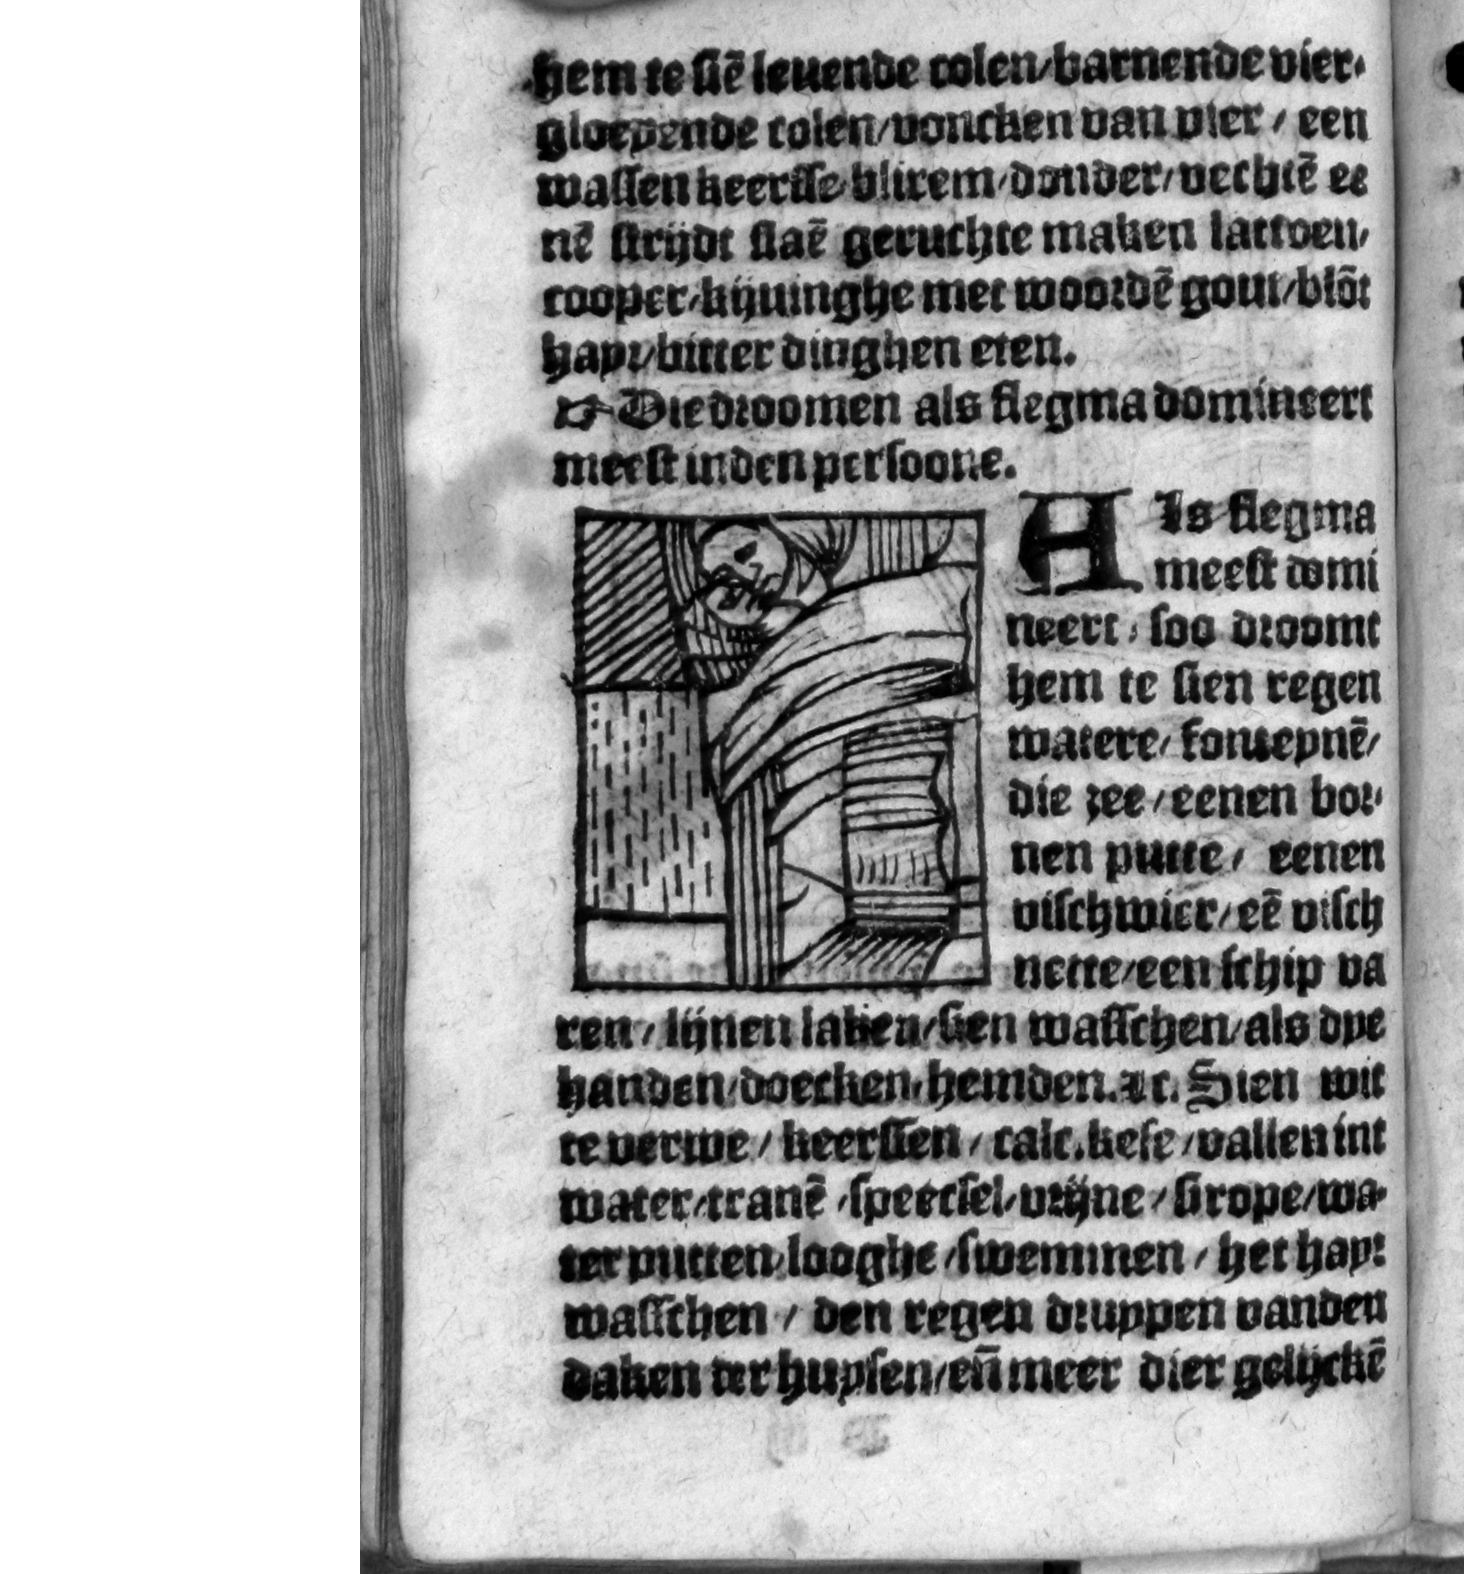 hem te siē leuende colen/barnende vier/
gloeyende colen/voncken van vier / een
wassen keersse/blixem/donder/vechtē ee
nē strijdt slaē geruchte maken lattoen/
cooper/kijuinghe met woordē gout/blōt
hayr/bitter dinghen eten.
☞ Die droomen als flegma domineert
meest inden persoone.
Als flegma
meest domi
neert / soo droomt
hem te sien regen
watere/ fonteynē/
die zee / eenen bor-
nen putte / eenen
visch wier/eē visch
nette/een schip va
ren / lijnen laken/sien wasschen/als dye
handen/doecken/hemden.⁊c. Sien wit
te verwe / keerssen / calc.kese /vallen int
water/tranē /speecsel/vrijne / sirope/wa-
ter putten/looghe /swemmen / het hayr
wasschen / den regen druppen vanden
daken ter huysen/eñ meer dier gelijckē